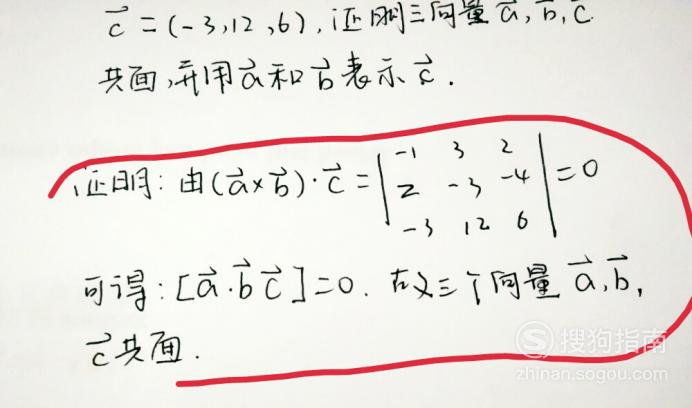 c⃗ = (-3,12,6), 证明三向量 a⃗, b⃗, c⃗
共面, 并用 a⃗ 和 b⃗ 表示 c⃗.
证明: 由 (a⃗×b⃗)·c⃗ = | -1 3 2 | = 0
| 2 -3 -4 |
| -3 12 6 |
可得: [a⃗·b⃗ c⃗] = 0. 故三个向量 a⃗, b⃗,
c⃗ 共面.
搜狗指南
zhinan.sogou.com